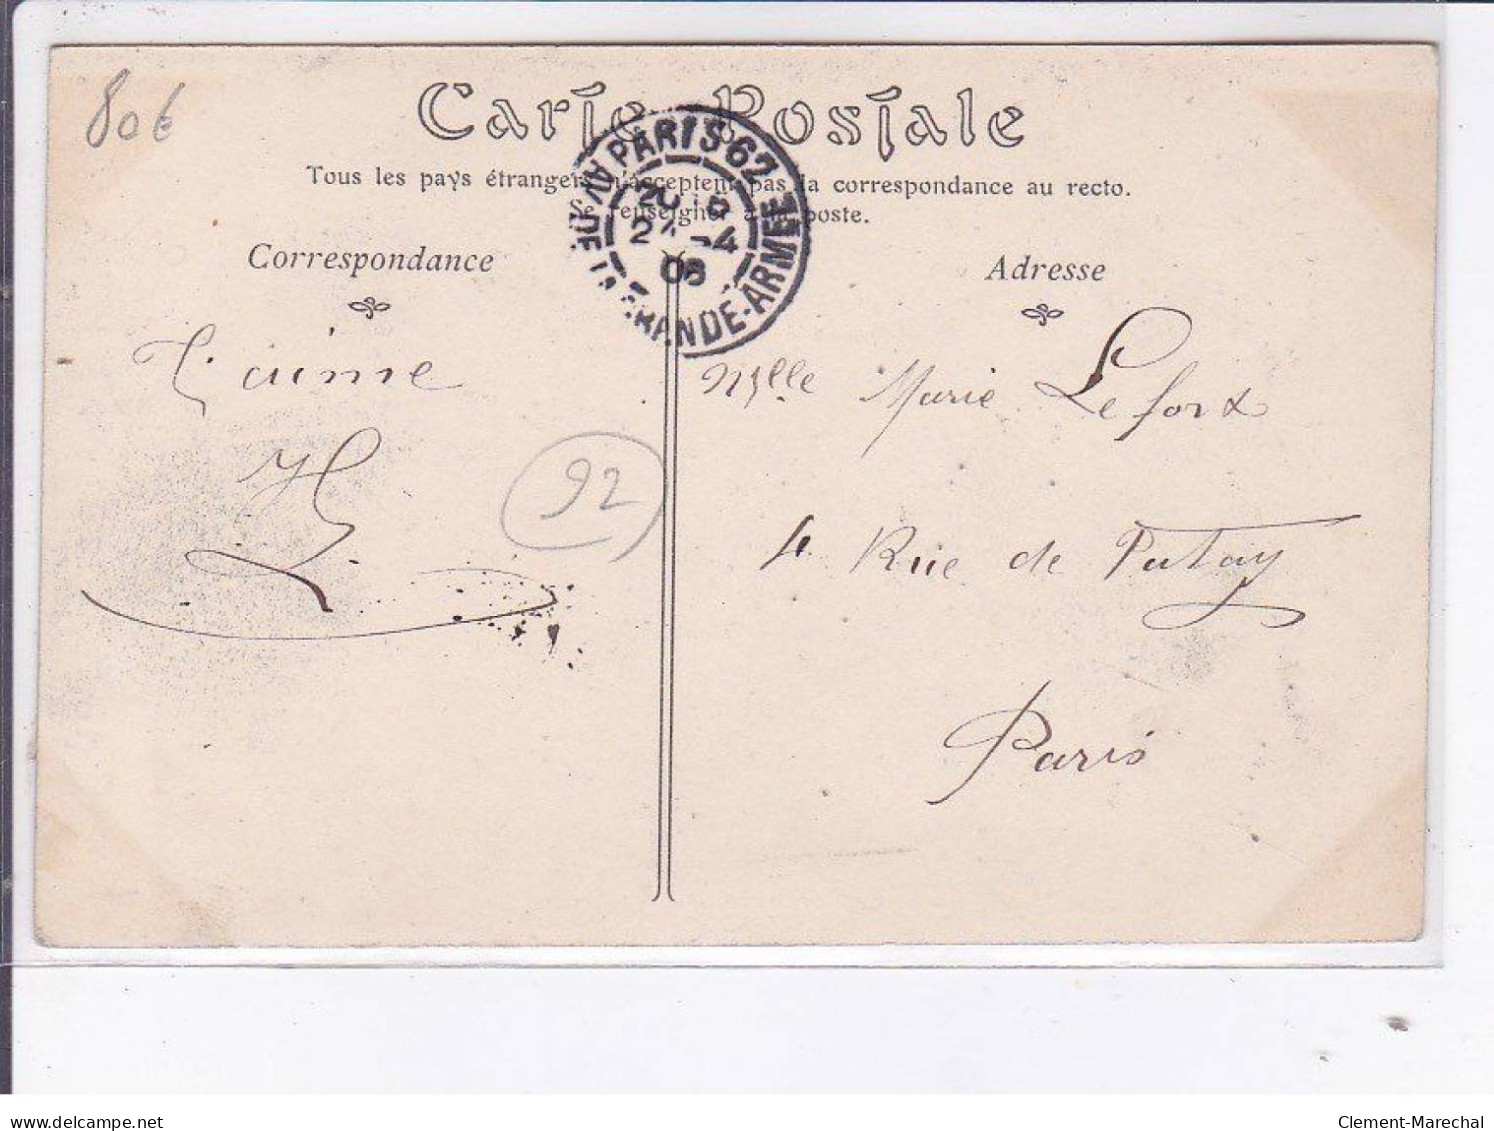 80€
Carte Postale
Tous les pays étrangers n'acceptent pas la correspondance au recto.
Se renseigner à la poste.
PARIS 62
AV. DE LA GRANDE-ARMEE
-4
08
Correspondance
Adresse
T'aime
92
Mlle Marie Lefort
4 Rue de Patay
Paris
delcampe.net
Clement-Marechal